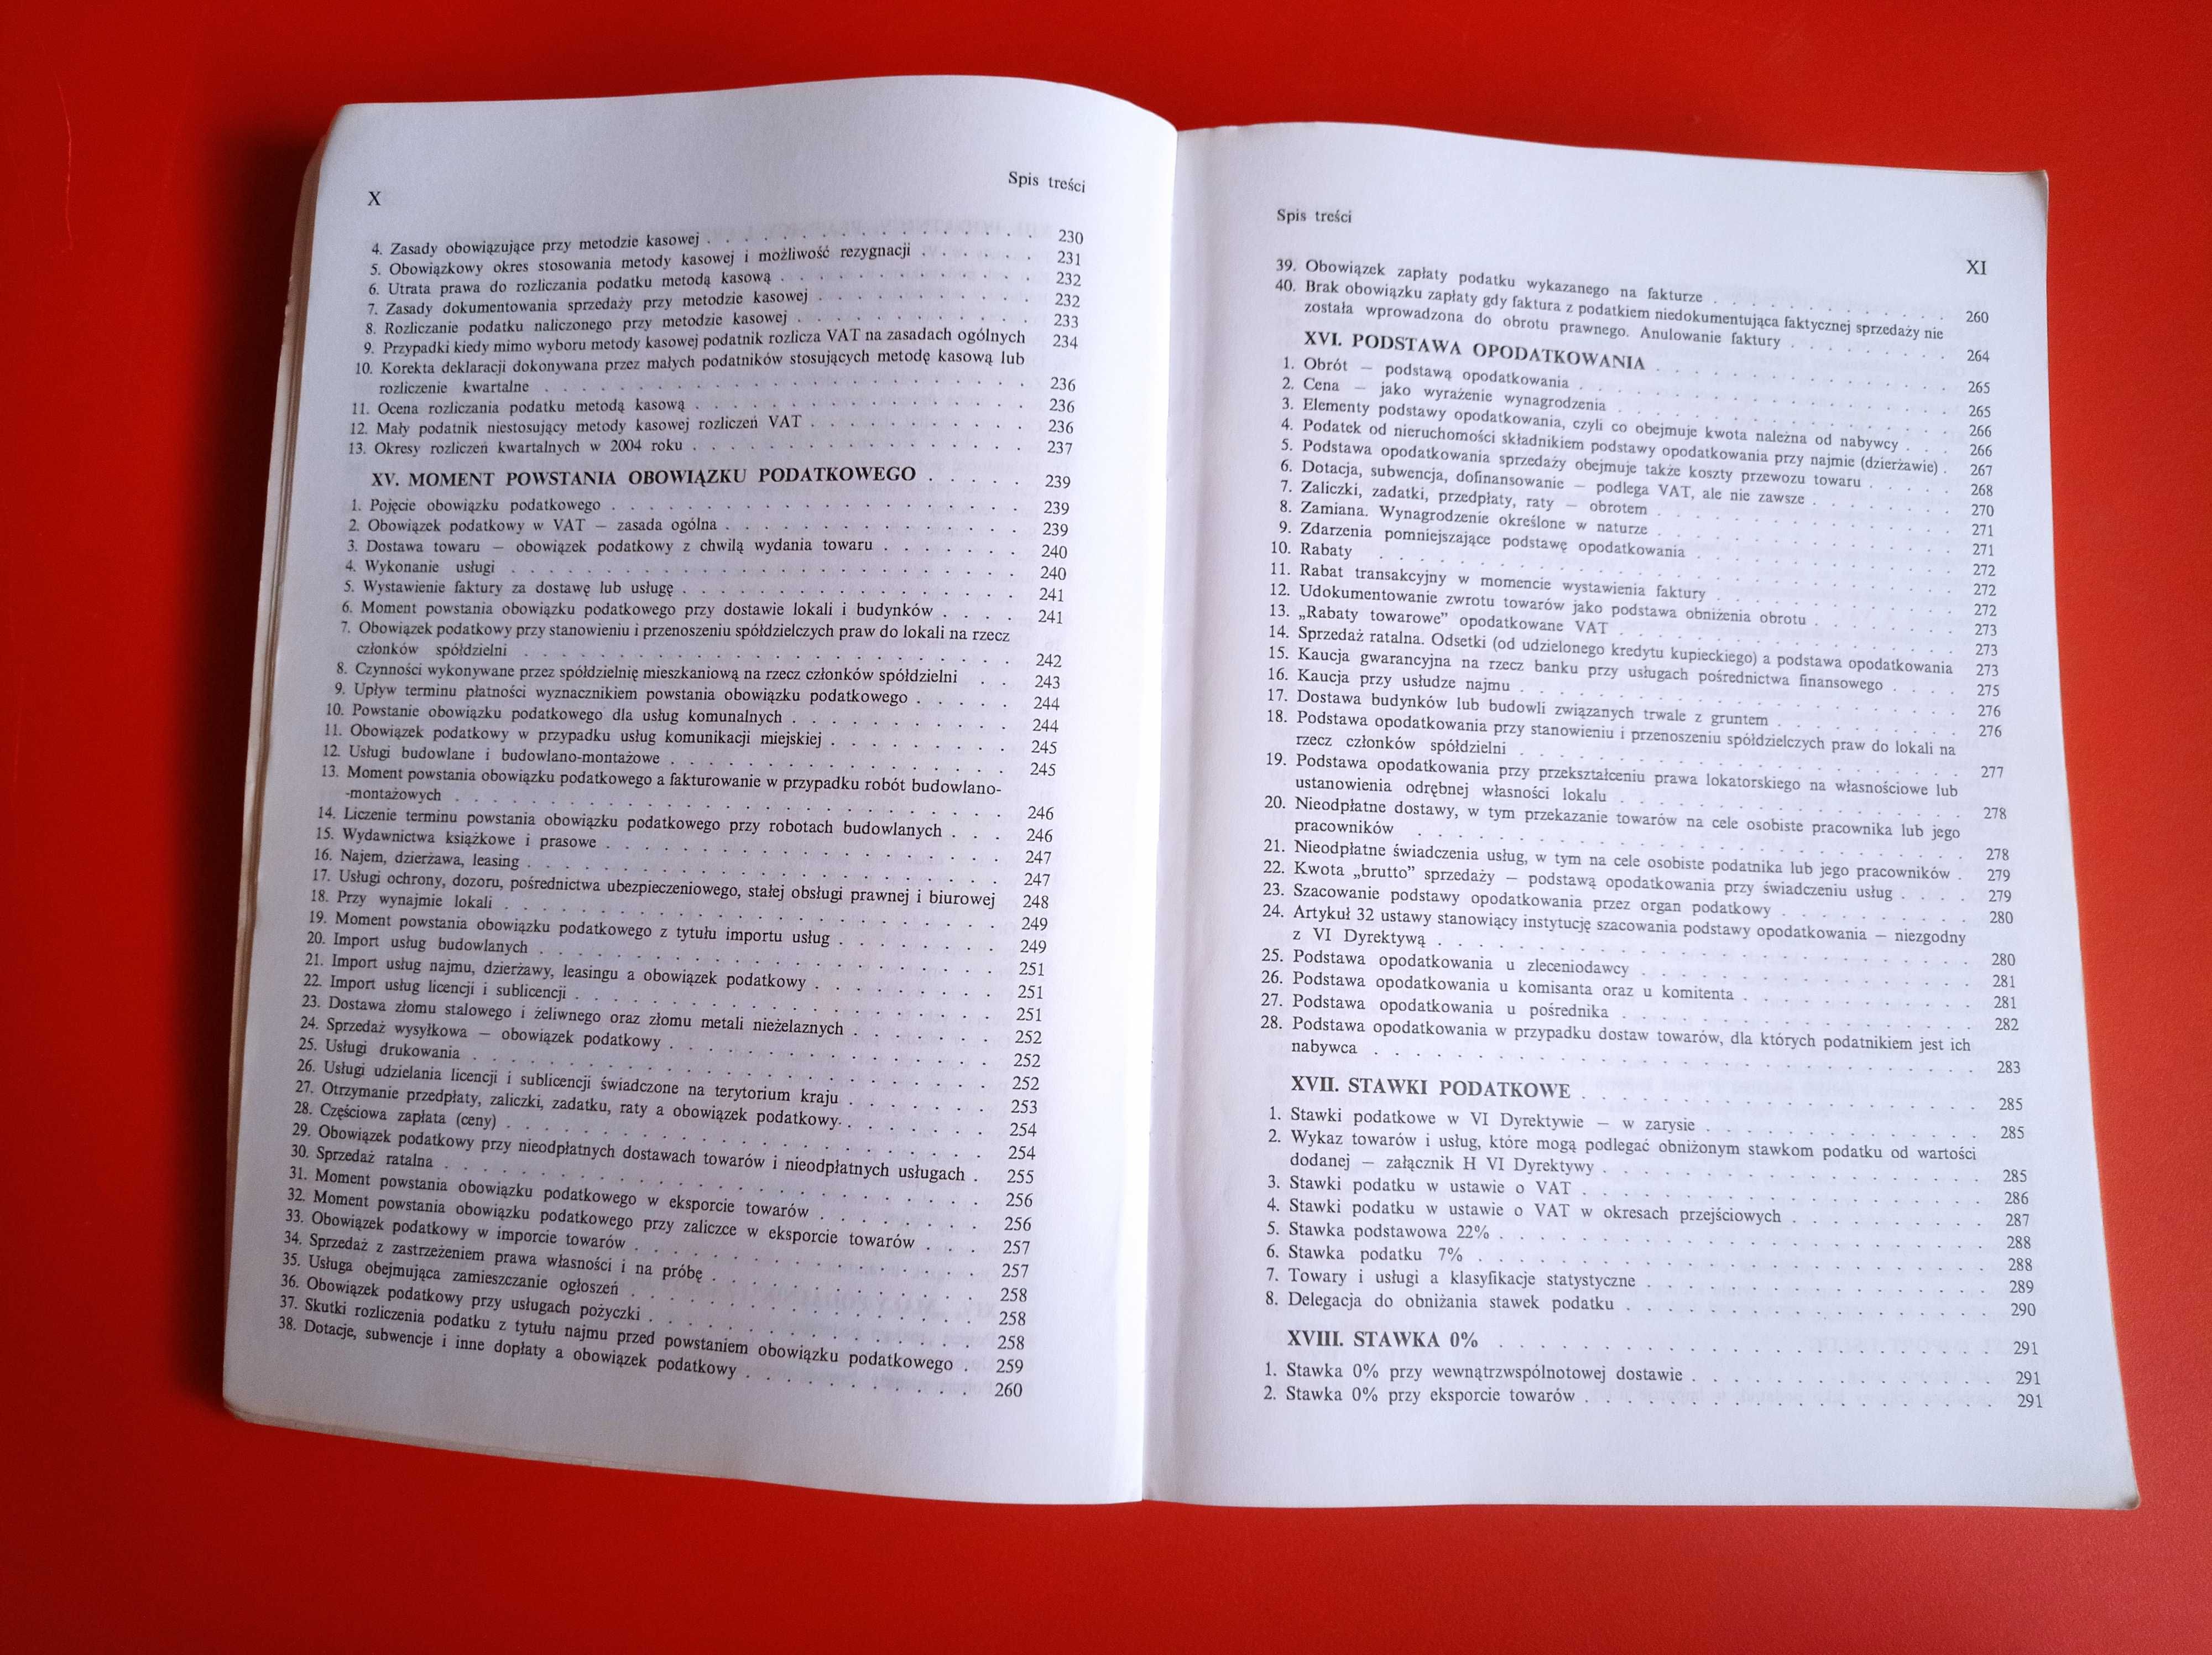 X
Spis treści
4. Zasady obowiązujące przy metodzie kasowej . . . . . . . . . . . . . . . . 230
5. Obowiązkowy okres stosowania metody kasowej i możliwość rezygnacji . . . . . . 231
6. Utrata prawa do rozliczania podatku metodą kasową . . . . . . . . . . . . 232
7. Zasady dokumentowania sprzedaży przy metodzie kasowej . . . . . . . . . . 232
8. Rozliczanie podatku naliczonego przy metodzie kasowej . . . . . . . . . . . 233
9. Przypadki kiedy mimo wyboru metody kasowej podatnik rozlicza VAT na zasadach ogólnych 234
10. Korekta deklaracji dokonywana przez małych podatników stosujących metodę kasową lub
rozliczenie kwartalne . . . . . . . . . . . . . . . . . . . . . . 236
11. Ocena rozliczania podatku metodą kasową . . . . . . . . . . . . . . . 236
12. Mały podatnik niestosujący metody kasowej rozliczeń VAT . . . . . . . . . . 236
13. Okresy rozliczeń kwartalnych w 2004 roku . . . . . . . . . . . . . . . 237
XV. MOMENT POWSTANIA OBOWIĄZKU PODATKOWEGO . . . . . 239
1. Pojęcie obowiązku podatkowego . . . . . . . . . . . . . . . . . . . 239
2. Obowiązek podatkowy w VAT — zasada ogólna . . . . . . . . . . . . . . 239
3. Dostawa towaru — obowiązek podatkowy z chwilą wydania towaru . . . . . . . 240
4. Wykonanie usługi . . . . . . . . . . . . . . . . . . . . . . . . 240
5. Wystawienie faktury za dostawę lub usługę . . . . . . . . . . . . . . . 241
6. Moment powstania obowiązku podatkowego przy dostawie lokali i budynków . . . . 241
7. Obowiązek podatkowy przy stanowieniu i przenoszeniu spółdzielczych praw do lokali na rzecz
członków spółdzielni . . . . . . . . . . . . . . . . . . . . . . . 242
8. Czynności wykonywane przez spółdzielnię mieszkaniową na rzecz członków spółdzielni . . 243
9. Upływ terminu płatności wyznacznikiem powstania obowiązku podatkowego . . . . . 244
10. Powstanie obowiązku podatkowego dla usług komunalnych . . . . . . . . . . 244
11. Obowiązek podatkowy w przypadku usług komunikacji miejskiej . . . . . . . . 245
12. Usługi budowlane i budowlano-montażowe . . . . . . . . . . . . . . . 245
13. Moment powstania obowiązku podatkowego a fakturowanie w przypadku robót budowlano-
-montażowych . . . . . . . . . . . . . . . . . . . . . . . . . 246
14. Liczenie terminu powstania obowiązku podatkowego przy robotach budowlanych . . . 246
15. Wydawnictwa książkowe i prasowe . . . . . . . . . . . . . . . . . . 247
16. Najem, dzierżawa, leasing . . . . . . . . . . . . . . . . . . . . . 247
17. Usługi ochrony, dozoru, pośrednictwa ubezpieczeniowego, stałej obsługi prawnej i biurowej 248
18. Przy wynajmie lokali . . . . . . . . . . . . . . . . . . . . . . . 249
19. Moment powstania obowiązku podatkowego z tytułu importu usług . . . . . . . . 249
20. Import usług budowlanych . . . . . . . . . . . . . . . . . . . . . 251
21. Import usług najmu, dzierżawy, leasingu a obowiązek podatkowy . . . . . . . . 251
22. Import usług licencji i sublicencji . . . . . . . . . . . . . . . . . . . 251
23. Dostawa złomu stalowego i żeliwnego oraz złomu metali nieżelaznych . . . . . . 252
24. Sprzedaż wysyłkowa — obowiązek podatkowy . . . . . . . . . . . . . . 252
25. Usługi drukowania . . . . . . . . . . . . . . . . . . . . . . . . 252
26. Usługi udzielania licencji i sublicencji świadczone na terytorium kraju . . . . . . 253
27. Otrzymanie przedpłaty, zaliczki, zadatku, raty a obowiązek podatkowy . . . . . . 254
28. Częściowa zapłata (ceny) . . . . . . . . . . . . . . . . . . . . . . 254
29. Obowiązek podatkowy przy nieodpłatnych dostawach towarów i nieodpłatnych usługach . 255
30. Sprzedaż ratalna . . . . . . . . . . . . . . . . . . . . . . . . . 256
31. Moment powstania obowiązku podatkowego w eksporcie towarów . . . . . . . . 256
32. Moment powstania obowiązku podatkowego przy zaliczce w eksporcie towarów . . . 257
33. Obowiązek podatkowy w imporcie towarów . . . . . . . . . . . . . . . 257
34. Sprzedaż z zastrzeżeniem prawa własności i na próbę . . . . . . . . . . . . 258
35. Usługa obejmująca zamieszczanie ogłoszeń . . . . . . . . . . . . . . . . 258
36. Obowiązek podatkowy przy usługach pożyczki . . . . . . . . . . . . . . . 258
37. Skutki rozliczenia podatku z tytułu najmu przed powstaniem obowiązku podatkowego . 259
38. Dotacje, subwencje i inne dopłaty a obowiązek podatkowy . . . . . . . . . . 260
Spis treści
XI
39. Obowiązek zapłaty podatku wykazanego na fakturze . . . . . . . . . . . 260
40. Brak obowiązku zapłaty gdy faktura z podatkiem niedokumentująca faktycznej sprzedaży nie
została wprowadzona do obrotu prawnego. Anulowanie faktury . . . . . . . . 264
XVI. PODSTAWA OPODATKOWANIA . . . . . . . . . . . . . . 265
1. Obrót — podstawą opodatkowania . . . . . . . . . . . . . . . . . . 265
2. Cena — jako wyrażenie wynagrodzenia . . . . . . . . . . . . . . . . 266
3. Elementy podstawy opodatkowania, czyli co obejmuje kwota należna od nabywcy . . . 266
4. Podatek od nieruchomości składnikiem podstawy opodatkowania przy najmie (dzierżawie) . 267
5. Podstawa opodatkowania sprzedaży obejmuje także koszty przewozu towaru . . . . . 268
6. Dotacja, subwencja, dofinansowanie — podlega VAT, ale nie zawsze . . . . . . . 270
7. Zaliczki, zadatki, przedpłaty, raty — obrotem . . . . . . . . . . . . . . 271
8. Zamiana. Wynagrodzenie określone w naturze . . . . . . . . . . . . . . 271
9. Zdarzenia pomniejszające podstawę opodatkowania . . . . . . . . . . . . 272
10. Rabaty . . . . . . . . . . . . . . . . . . . . . . . . . . . . 272
11. Rabat transakcyjny w momencie wystawienia faktury . . . . . . . . . . . . 272
12. Udokumentowanie zwrotu towarów jako podstawa obniżenia obrotu . . . . . . . 273
13. „Rabaty towarowe” opodatkowane VAT . . . . . . . . . . . . . . . . 273
14. Sprzedaż ratalna. Odsetki (od udzielonego kredytu kupieckiego) a podstawa opodatkowania 273
15. Kaucja gwarancyjna na rzecz banku przy usługach pośrednictwa finansowego . . . . 275
16. Kaucja przy usłudze najmu . . . . . . . . . . . . . . . . . . . . . 276
17. Dostawa budynków lub budowli związanych trwale z gruntem . . . . . . . . . 276
18. Podstawa opodatkowania przy stanowieniu i przenoszeniu spółdzielczych praw do lokali na
rzecz członków spółdzielni . . . . . . . . . . . . . . . . . . . . . 277
19. Podstawa opodatkowania przy przekształceniu prawa lokatorskiego na własnościowe lub
ustanowienia odrębnej własności lokalu . . . . . . . . . . . . . . . . . 278
20. Nieodpłatne dostawy, w tym przekazanie towarów na cele osobiste pracownika lub jego
pracowników . . . . . . . . . . . . . . . . . . . . . . . . . . 278
21. Nieodpłatne świadczenia usług, w tym na cele osobiste podatnika lub jego pracowników . 279
22. Kwota „brutto” sprzedaży — podstawą opodatkowania przy świadczeniu usług . . . . 279
23. Szacowanie podstawy opodatkowania przez organ podatkowy . . . . . . . . . 280
24. Artykuł 32 ustawy stanowiący instytucję szacowania podstawy opodatkowania — niezgodny
z VI Dyrektywą . . . . . . . . . . . . . . . . . . . . . . . . . 280
25. Podstawa opodatkowania u zleceniodawcy . . . . . . . . . . . . . . . . 281
26. Podstawa opodatkowania u komisanta oraz u komitenta . . . . . . . . . . . 281
27. Podstawa opodatkowania u pośrednika . . . . . . . . . . . . . . . . . 282
28. Podstawa opodatkowania w przypadku dostaw towarów, dla których podatnikiem jest ich
nabywca . . . . . . . . . . . . . . . . . . . . . . . . . . . . 283
XVII. STAWKI PODATKOWE . . . . . . . . . . . . . . . . . . 285
1. Stawki podatkowe w VI Dyrektywie — w zarysie . . . . . . . . . . . . . 285
2. Wykaz towarów i usług, które mogą podlegać obniżonym stawkom podatku od wartości
dodanej — załącznik H VI Dyrektywy . . . . . . . . . . . . . . . . . 285
3. Stawki podatku w ustawie o VAT . . . . . . . . . . . . . . . . . . . 286
4. Stawki podatku w ustawie o VAT w okresach przejściowych . . . . . . . . . 287
5. Stawka podstawowa 22% . . . . . . . . . . . . . . . . . . . . . . 288
6. Stawka podatku 7% . . . . . . . . . . . . . . . . . . . . . . . . 288
7. Towary i usługi a klasyfikacje statystyczne . . . . . . . . . . . . . . . 289
8. Delegacja do obniżania stawek podatku . . . . . . . . . . . . . . . . . 290
XVIII. STAWKA 0% . . . . . . . . . . . . . . . . . . . . . . 291
1. Stawka 0% przy wewnątrzwspólnotowej dostawie . . . . . . . . . . . . . 291
2. Stawka 0% przy eksporcie towarów . . . . . . . . . . . . . . . . . . 291